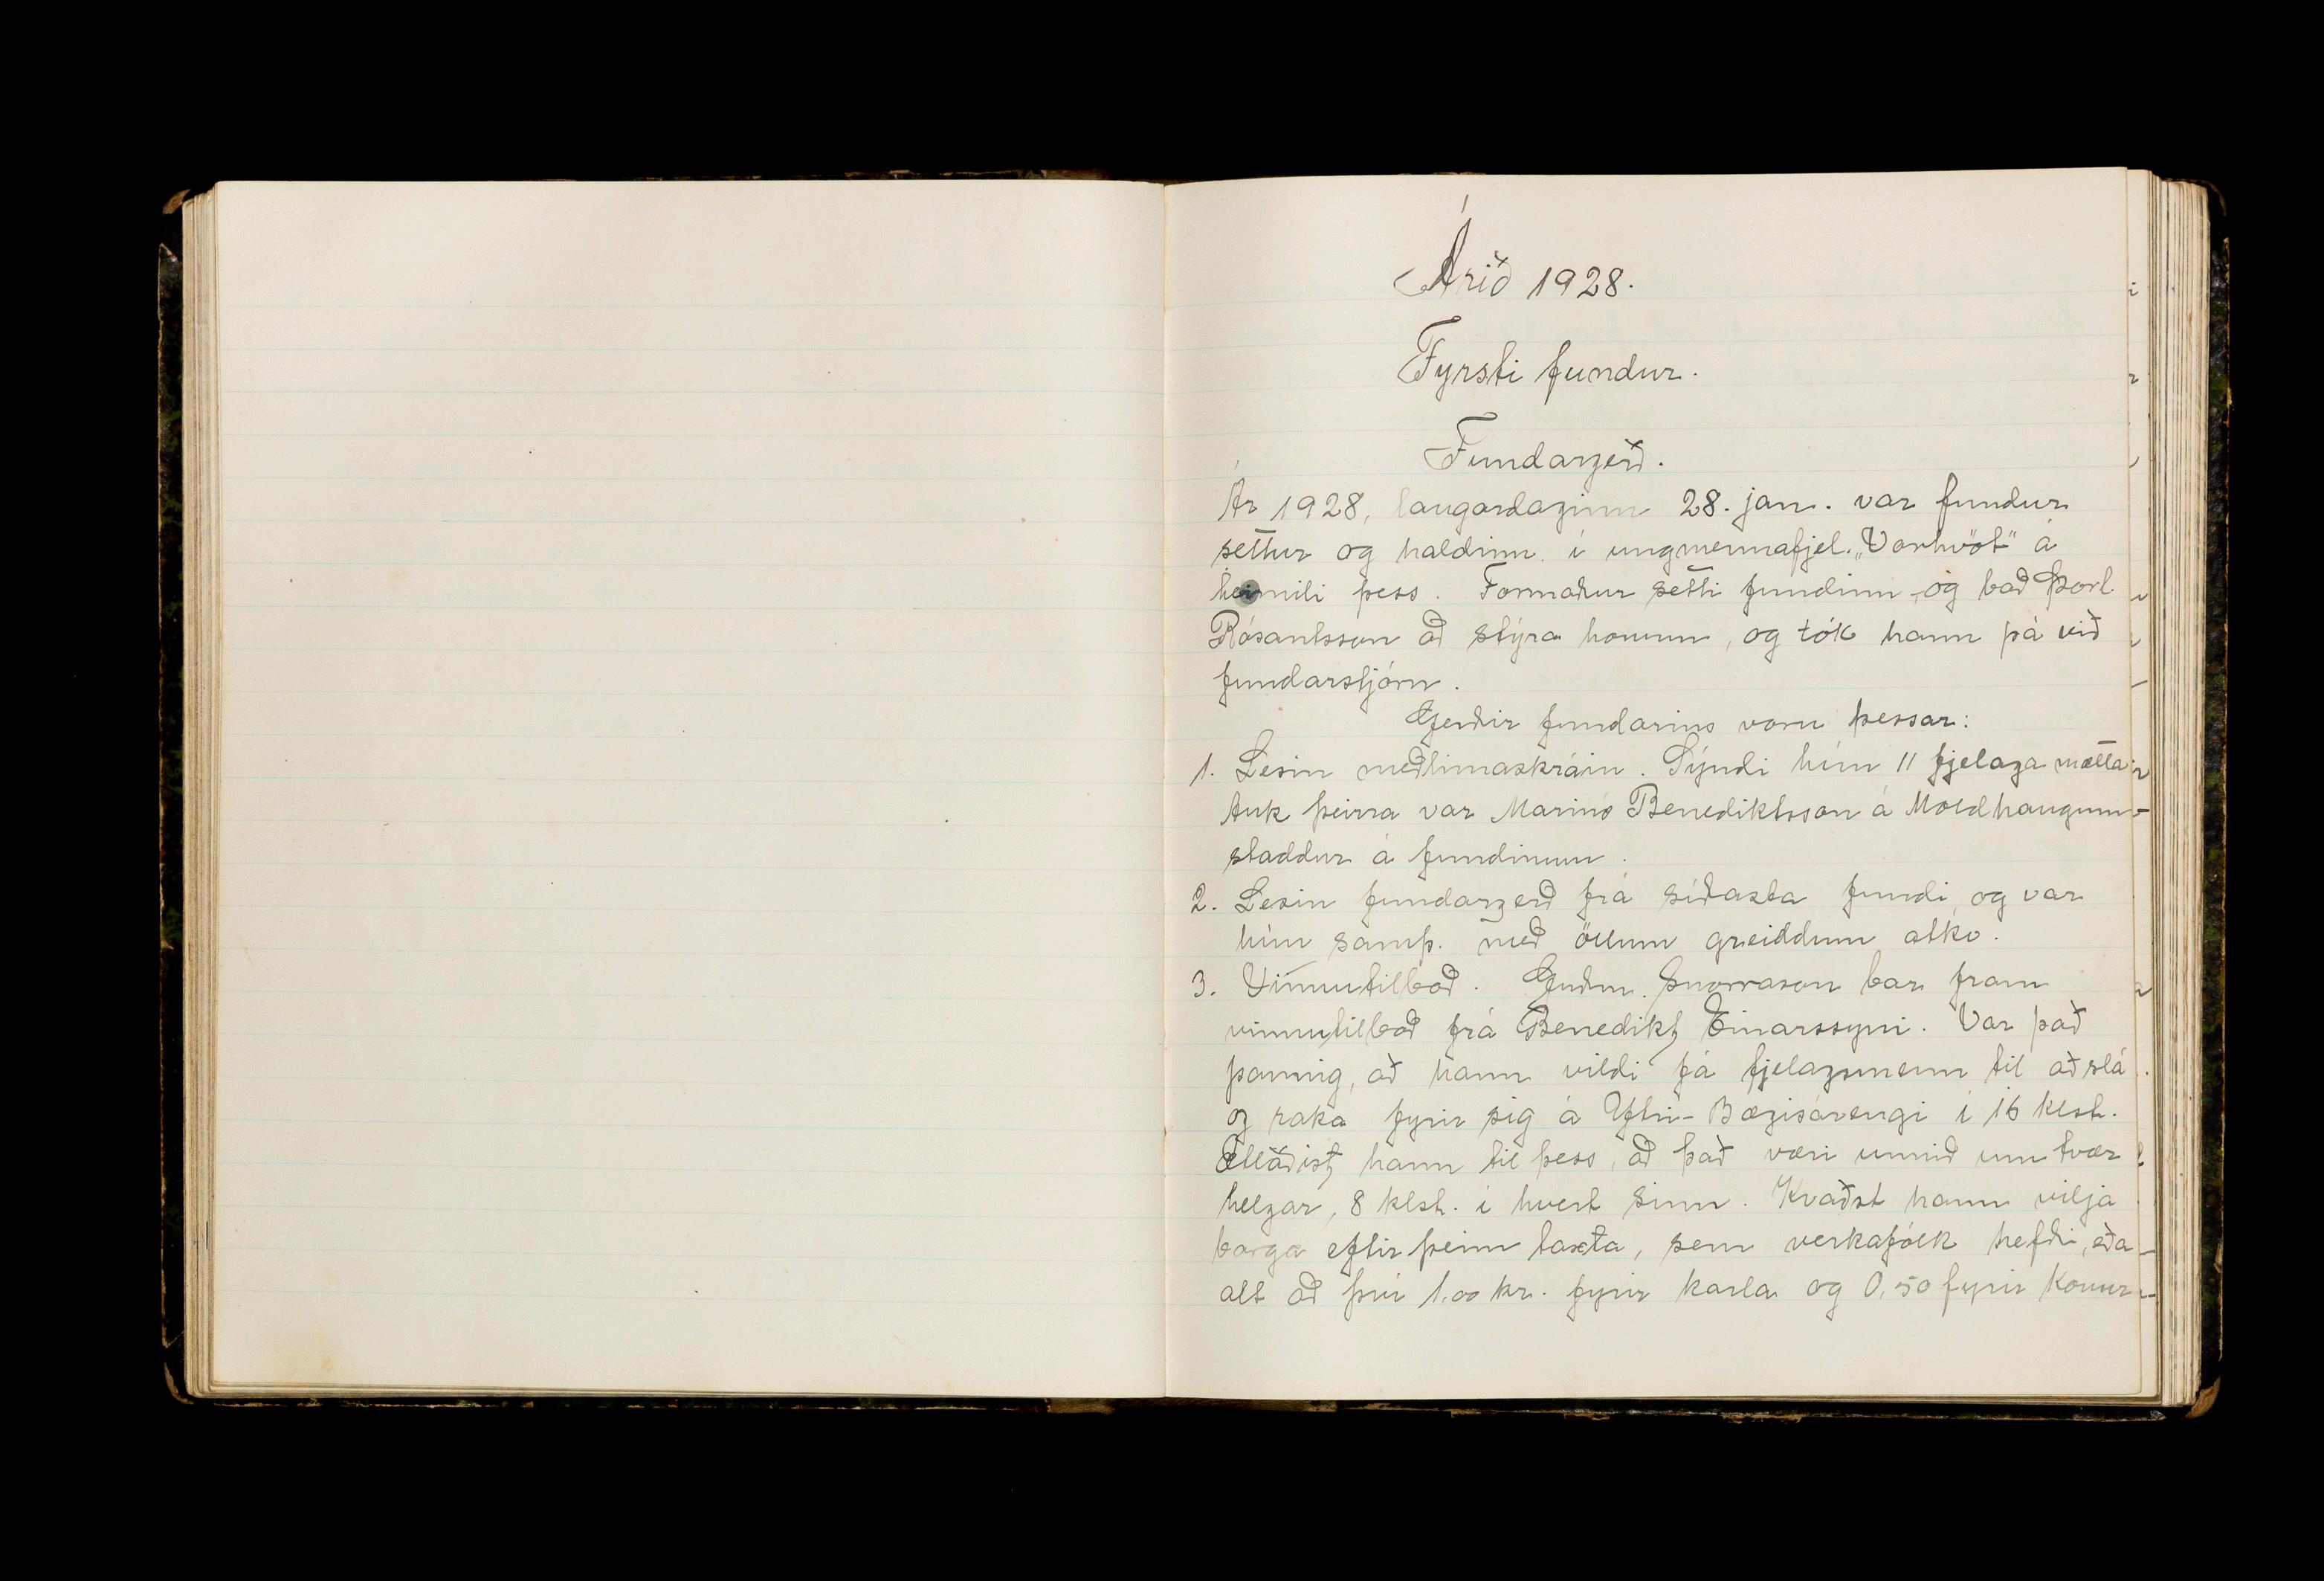 Árið 1928.
Fyrsti fundur.
Fundargerð.
Ár 1928, laugardaginn 28. jan. var fundur
settur og haldinn í ungmennafjel. „Vorhvöt" á
heimili þess. Formaður setti fundinn og bað Þorl.
Rósantsson að stýra honum, og tók hann þá við
fundarstjórn.
Gjerðir fundarins voru þessar:
1. Lesin meðlimaskráin. Sýndi hún 11 fjelaga mætta
Auk þeirra var Marinó Benediktsson á Moldhaugum
staddur á fundinum.
2. Lesin fundargerð frá síðasta fundi, og var
hún samþ. með öllum greiddum atkv.
3. Vinnutilboð. Guðm. Snorrason bar fram
vinnutilboð frá Benedikt Einarssyni. Var það
þannig, að hann vildi fá fjelagsmenn til að slá
og raka fyrir sig á Ytri-Bægisárengi í 16 klst.
Ætlaðist hann til þess, að það væri unnið um tvær
helgar, 8 klst. í hvert sinn. Kvaðst hann vilja
borga eftir þeim taxta, sem verkafólk hefði, eða
alt að því 1.00 kr. fyrir karla og 0.50 fyrir konur